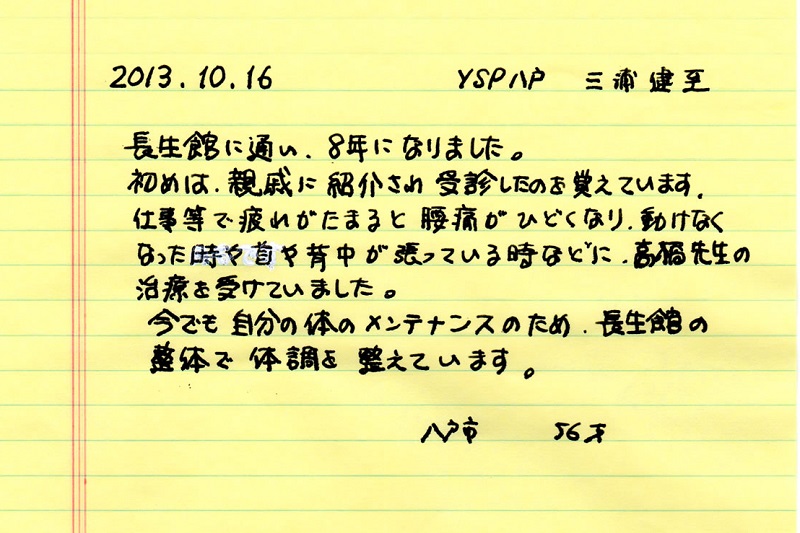 2013.10.16 YSP八戸 三浦健至
長生館に通い、8年になりました。
初めは、親戚に紹介され受診したのを覚えています。
仕事等で疲れがたまると腰痛がひどくなり、動けなく
なった時や首や背中が張っている時などに、高橋先生の
治療を受けていました。
今でも自分の体のメンテナンスのため、長生館の
整体で体調を整えています。
八戸市 56才